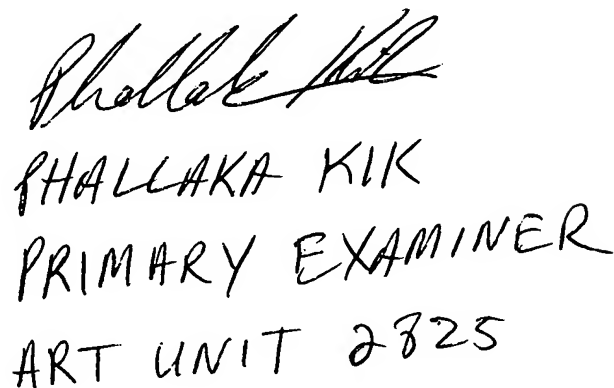 Phallaka Kik
PHALLAKA KIK
PRIMARY EXAMINER
ART UNIT 2825